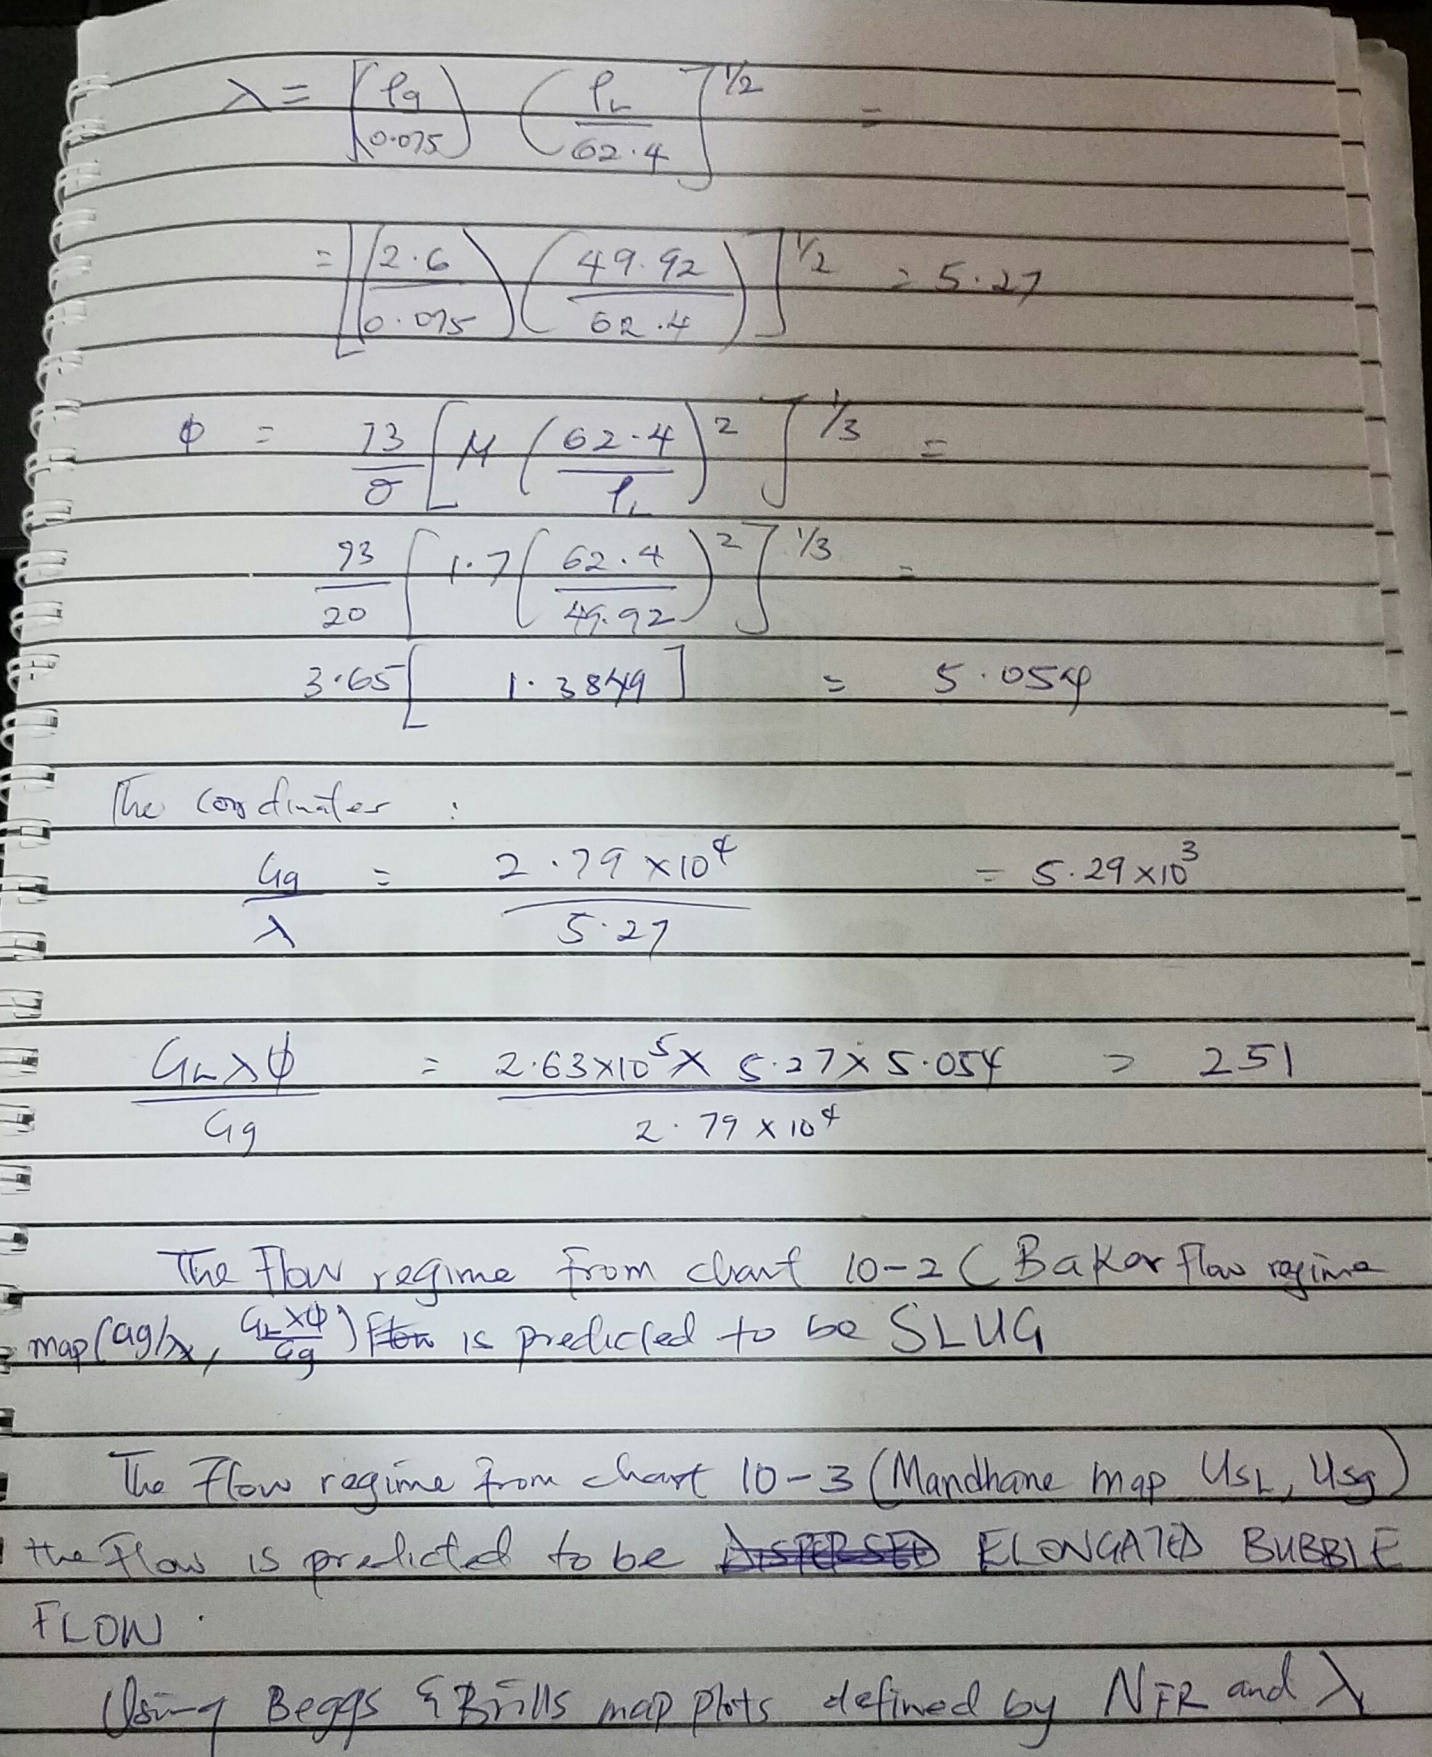 λ = [(ρg/0.075) (ρL/62.4)]^1/2 =
= [(2.6/0.075) (49.92/62.4)]^1/2 = 5.27
φ = 73/σ [μ (62.4/ρL)^2]^1/3 =
73/20 [1.7 (62.4/49.92)^2]^1/3 =
3.65 [1.3849] = 5.054
The coordinates :
Gg/λ = 2.79 x10^4 / 5.27 = 5.29 x10^3
GLλφ/Gg = 2.63x10^5 x 5.27 x 5.054 / 2.79 x 10^4 = 251
The Flow regime from chart 10-2 (Baker flow regime
map (Gg/λ, GLλφ/Gg) is predicted to be SLUG
The Flow regime from chart 10-3 (Mandhane map UsL, Usg)
the Flow is predicted to be DISPERSED ELONGATED BUBBLE
FLOW.
Using Beggs & Brills map plots defined by NFR and λ